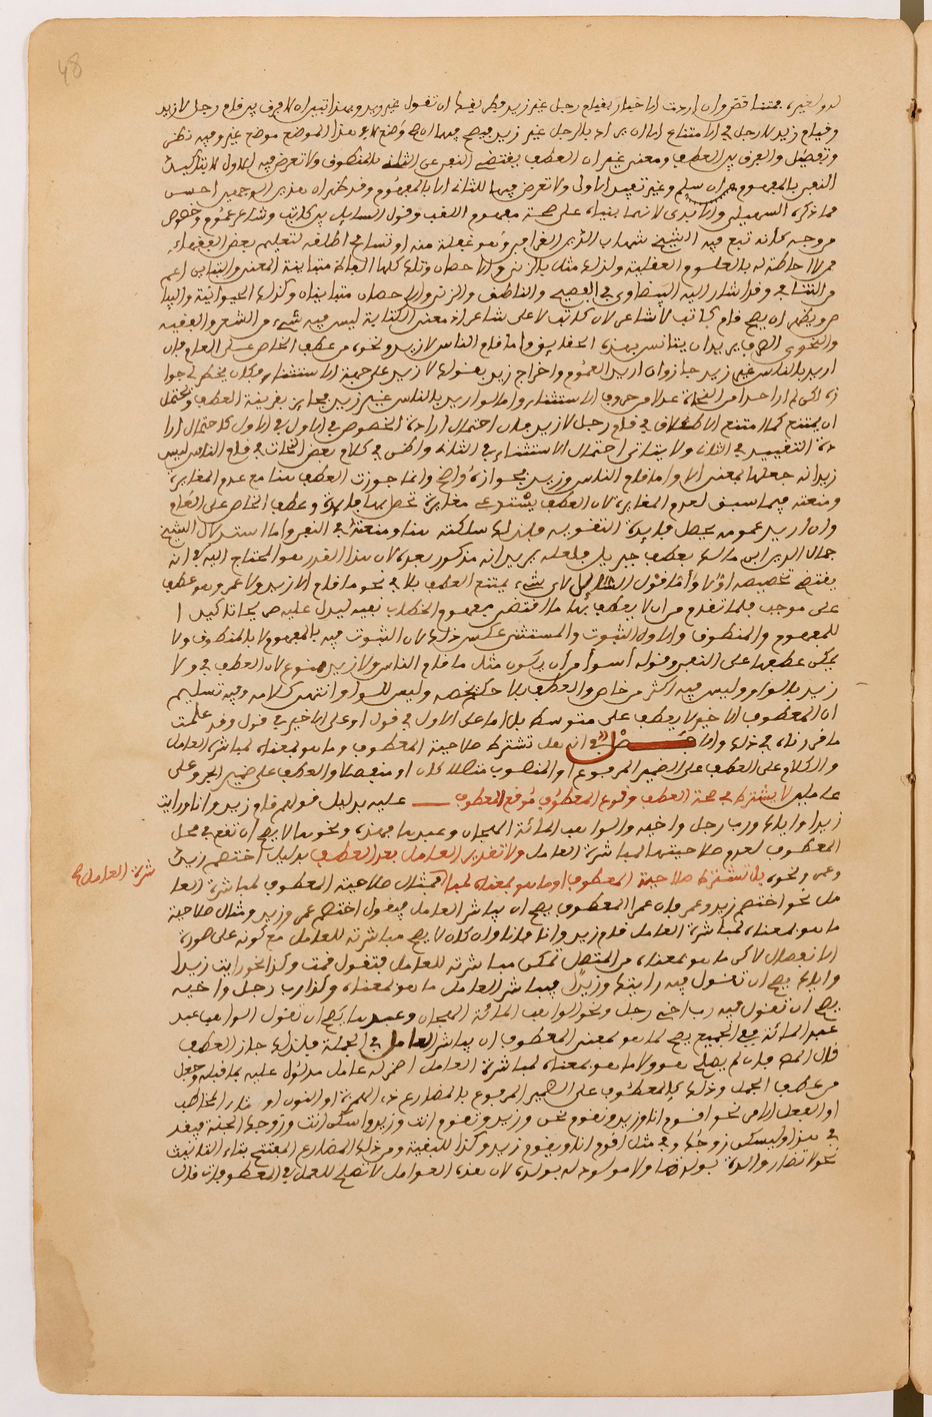 48
وقيام زيد لا رجل في الامتناع
وتفضيل والعرف بين العطف ومعنى غير ان العطف يقتضي النفي عن الثاني بالمنطوق ولا تعرض فيه للاول الا بتأكيد
النفي بالمفهوم وغير تقييد الاول ولا تعرض فيها للثاني الا بالمفهوم وقد ظهر ان هذين الوجهين احسن
مما ذكره السهيلي والابدي لانهما بنياه على صحة مفهوم اللقب وقول السايل بين كاتب وشاعر عموم وخصوص
من وجه كانه تبع فيه الشيخ شهاب الدين القرافي وهو غفلة منه او تسامح اطلقه لتعليم بعض الفقهاء
والتنافي وقد اشار اليه البيضاوي في الفصيح والناطق
ويظهر ان يصح قام كاتب لا شاعر لان كاتب لا على شاعر اذ معنى الكتابة ليس فيه شيء من الشعر والفقيه
ما قام الناس لا زيد ونحوه من عطف الخاص على العام فان
اريد بالناس غير زيد جاز وان اريد العموم واخراج زيد بقولك لا زيد على جهة الاستثناء فكان يخطر لي جوا
زه لكن لم ار احدا من النحاة عد لا من حروف الاستثناء واما لو اريد بالناس غير زيد فجايز بقرينة العطف ويحتمل
ان يمتنع كما امتنع الاطلاق في قام رجل لا زيد فان احتمال ارادة الخصوص في الاول كاحتمال ارا
دة التقييد في الثاني ولا يتاتى احتمال الاستثناء في الثاني واظن في كلام بعض النحات في قام الناس ليس
زيدا انه جعلها بمعنى لا واما قام الناس وزيد فجوازه واضح وانما جوزت العطف هنا مع عدم المغايرة
ومنعته فيما سبق لعدم المغايرة لان العطف يستدعي مغايرة تحصل بها فايدة وعطف الخاص على العام
وان اريد عمومه يحصل فايدة التقوية فلذلك سلكته هنا ومنعته في النفي واما استدلال الشيخ
جمال الدين ابن مالك بعطف جبريل فلعله يريد انه مذكور بعده لان هذا القدر هو المحتاج اليه في انه
يقتضي تخصيصه اولا واما قول السائل لاي شيء يمتنع العطف بلا في نحو ما قام الا زيد ولا عمرو وهو عطف
على موجب فلما تقدم من ان لا يعطف بها ما اقتضى مفهوم الخطاب نفيه ليدل عليه صريحا تاكيدا
للمفهوم والمنطوق والاول الثبوت والمستثنى عكس ذلك لان الثبوت فيه بالمفهوم لا بالمنطوق ولا
يمكن عطفها على النفي وقوله اسوأ من ان يكون مثل ما قام الناس ولا زيد ممنوع لان العطف في ولا
زيد بالواو وليس فيه اكثر من خاص والعطف بلا حكم يخصه وليس للواو انتهى كلامه وفيه تسليم
ان المعطوف الاخير لا يعطف على متوسط بل اما على الاول في قول او على الاخير في قول وقد علمت
ما قررناه في ذلك والله فصل في انه هل تشترط صلاحية المعطوف وما هو بمعناه لمباشرة العامل
والكلام على العطف على الضمير المرفوع او المنصوب متصلا كان او منفصلا والعطف على ضمير الجر وعلى
عامله لا يشترط في صحة العطف وقوع المعطوف موقع المعطوف عليه بدليل قولهم قام زيد وانا ورايت
زيدا واياك ورب رجل واخيه والواهب المائة الهجان وعبدها فهذه ونحوها لا يصح ان تقع في محل
المعطوف لعدم صلاحيتها لمباشرة العامل ولا تقدير العامل بعد العطف بدليل اختصم زيد
شرط العامل في
وعمرو ونحوه بل تشترط صلاحية المعطوف او ما هو بمعناه لمباشرة العا
مل نحو اختصم زيد وعمرو فان عمرا المعطوف يصح ان يباشر العامل فيقول اختصم عمرو وزيد ومثال صلاحية
ما هو بمعناه لمباشرة العامل قام زيد وانا فانا وان كان لا يصح مباشرته للعامل مع كونه على صورة
الانفصال لاكن ما هو بمعناه من المتصل تمكن مباشرته للعامل فتقول قمت وكذا نحو رايت زيدا
واياك يصح ان تقول فيه رايتك وزيدا فيباشر العامل ما هو بمعناه وكذا رب رجل واخيه
يصح ان تقول فيه رب اخي رجل ونحو الواهب المائة الهجان وعبدها يصح ان تقول الواهب عبد
عبد المائة ففي الجميع يصح لما هو بمعنى المعطوف ان يباشر العامل في الجملة فلذلك جاز العطف
قال المص فان لم يصلح هو ولا ما هو بمعناه لمباشرة العامل اضمر له عامل مدلول عليه بما قبله وجعل
من عطف الجمل وذلك كالمعطوف على الضمير المرفوع بالمضارع ذي الهمزة او النون او تاء المخاطب
او الفعل الامر نحو اقوم انا وزيد ونقوم نحن وزيد وتقوم انت وزيد واسكن انت وزوجك الجنة فيقد
في هذا وليسكن زوجك وفي مثل اقوم انا ويقوم زيد وكذا البقية ومن ذلك المضارع المفتتح بتاء التانيث
نحو لا تضار والدة بولدها ولا مولود له بولده لان هذه العوامل لا تصلح للعمل في المعطوفات قال